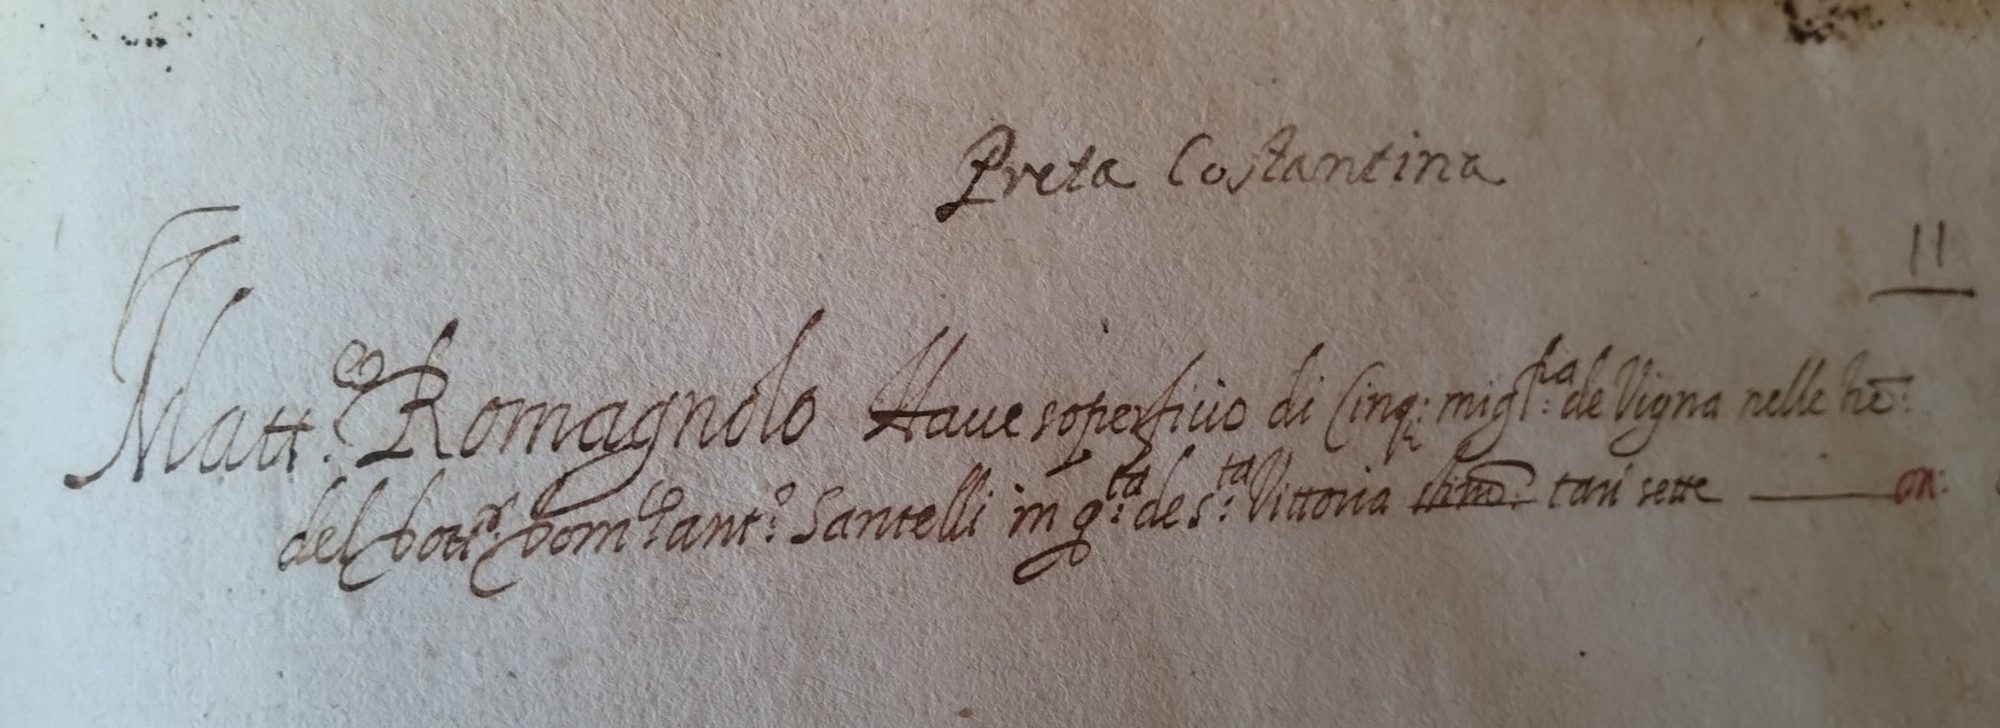 Preta Costantina
11
Matt.co Romagnolo Haue soperficio di Cinq: migl:ra de Vigna nelle
del Dott:r Dom:co ant:o Santelli in q:ta de s:ta Vittoria tarì sette on: